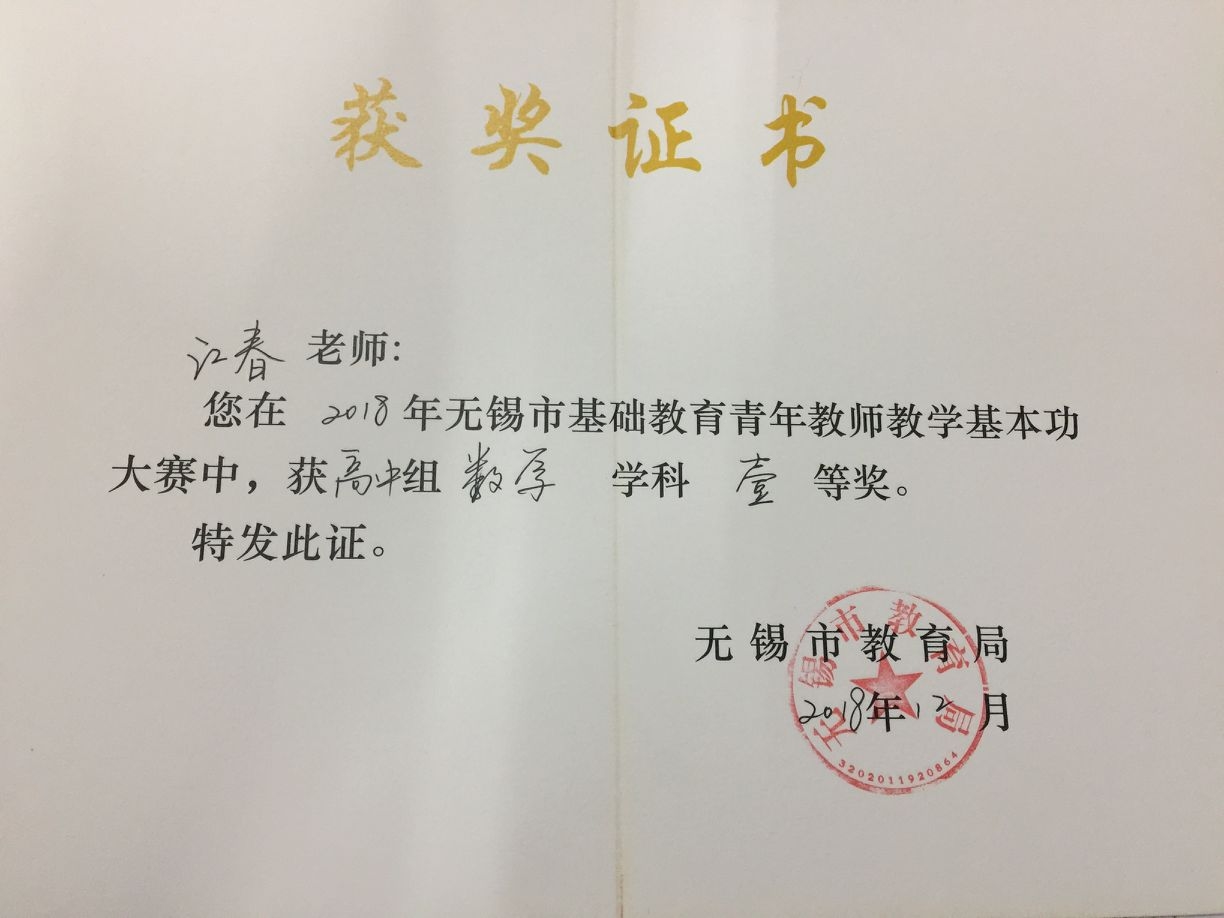 获奖证书
江春 老师:
您在 2018 年无锡市基础教育青年教师教学基本功
大赛中，获高中组 数学 学科 壹 等奖。
特发此证。
无锡市教育局
2018年12月
无锡市教育局
3202011920864